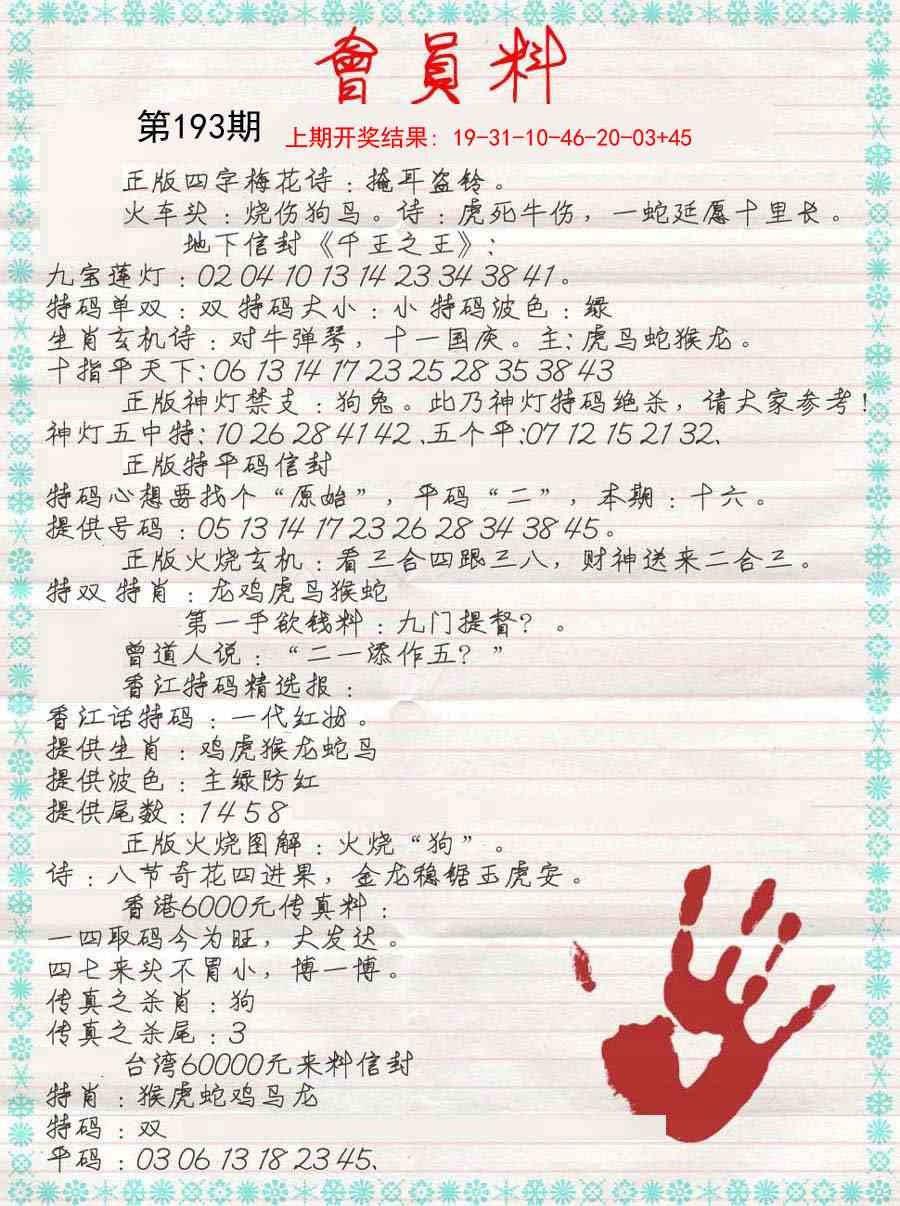 會員料
第193期 上期开奖结果：19-31-10-46-20-03+45
正版四字梅花诗：掩耳盗铃。
火车头：烧伤狗鸟。诗：虎死牛伤，一蛇延愿十里长。
地下信封《千王之王》：
九宝莲灯：02 04 10 13 14 23 34 38 41。
特码单双：双 特码大小：小 特码波色：绿
生肖玄机诗：对牛弹琴，十一国庆。主：虎马蛇猴龙。
十指平天下：06 13 14 17 23 25 28 35 38 43
正版神灯禁支：狗兔。此乃神灯特码绝杀，请大家参考！
神灯五中特：10 26 28 41 42 、五个平：07 12 15 21 32、
正版特平码信封
特码心想要找个“原始”，平码“二”，本期：十六。
提供号码：05 13 14 17 23 26 28 34 38 45。
正版火烧玄机：看三合四跟三八，财神送来二合三。
特双 特肖：龙鸡虎马猴蛇
第一手欲钱料：九门提督？。
曾道人说：“二一添作五？”
香江特码精选报：
香江话特码：一代红妆。
提供生肖：鸡虎猴龙蛇马
提供波色：主绿防红
提供尾数：1 4 5 8
正版火烧图解：火烧“狗”。
诗：八节奇花四进果，金龙稳锯玉虎安。
香港6000元传真料：
一四取码今为旺，大发达。
四七来头不胃小，博一博。
传真之杀肖：狗
传真之杀尾：3
台湾60000元来料信封
特肖：猴虎蛇鸡马龙
特码：双
平码：03 06 13 18 23 45、